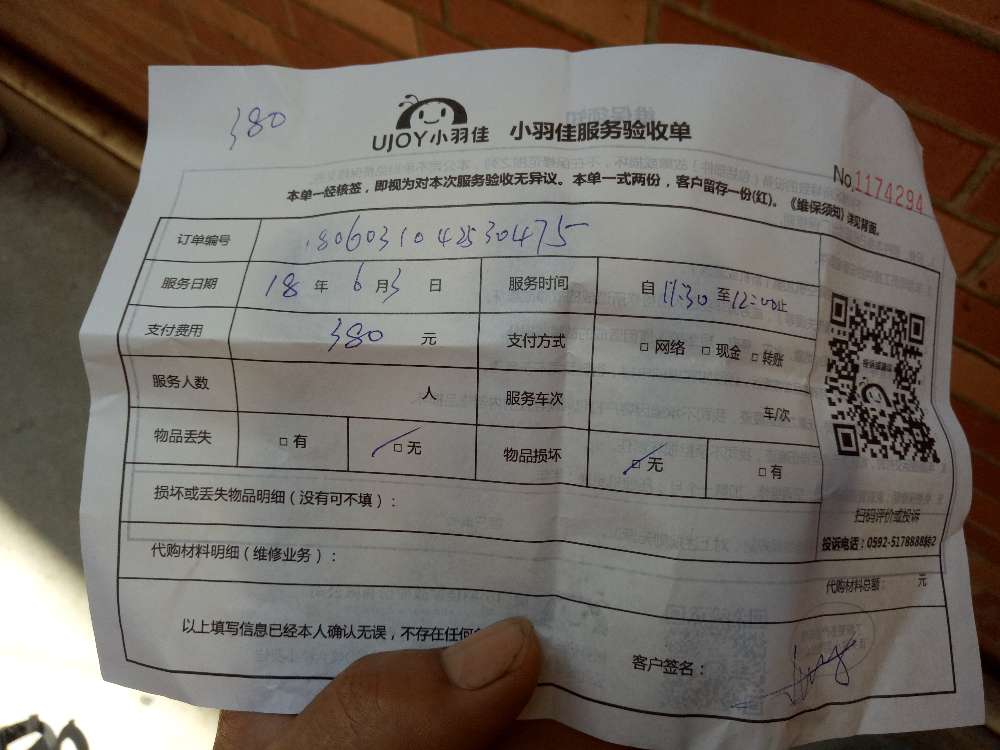 380
UJOY小羽佳 小羽佳服务验收单
No.1174294
本单一经核签，即视为对本次服务验收无异议。本单一式两份，客户留存一份(红)。《维保须知》详见背面。
订单编号 1806031042530475
服务日期 18 年 6 月 3 日 服务时间 自 11:30 至 12:00止
支付费用 380 元 支付方式 □ 网络 □ 现金 □ 转账
服务人数 人 服务车次 车/次
物品丢失 □ 有 □ 无 物品损坏 □ 无 □ 有
损坏或丢失物品明细（没有可不填）：
扫码评价或投诉
投诉电话：0592-5178888转2
代购材料明细（维修业务）：
代购材料总额： 元
以上填写信息已经本人确认无误，不存在任何
客户签名：